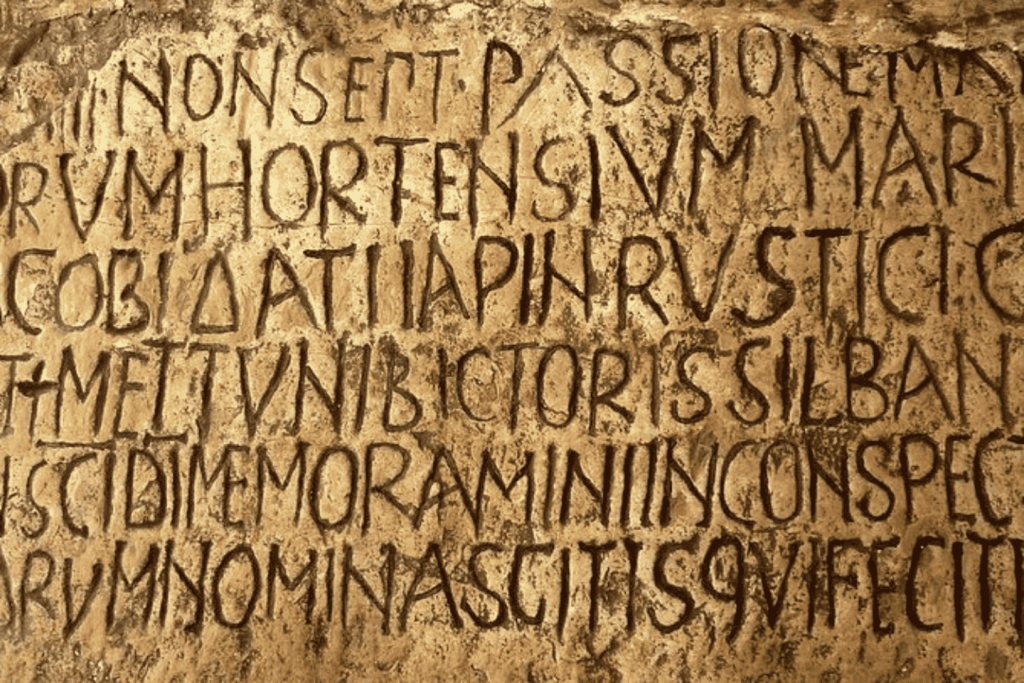 III NONSEPT PASSIONEMAR
ORVMHORTENSIVM MARI
ACOBIDATIIAPINRVSTICI C
T+METTVNIBICTORISSILBAN
NSCIDIMEMORAMINIINCONSPEC
ORVMNOMINASCITISQVIFECIT